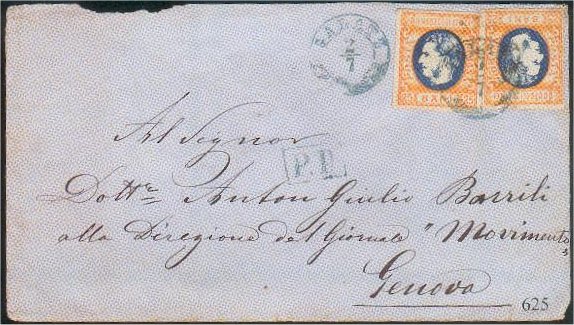 Al Signor
P.D.
Dott.re Anton Giulio Barrili
alla Direzione del Giornale "Movimento"
Genova
625